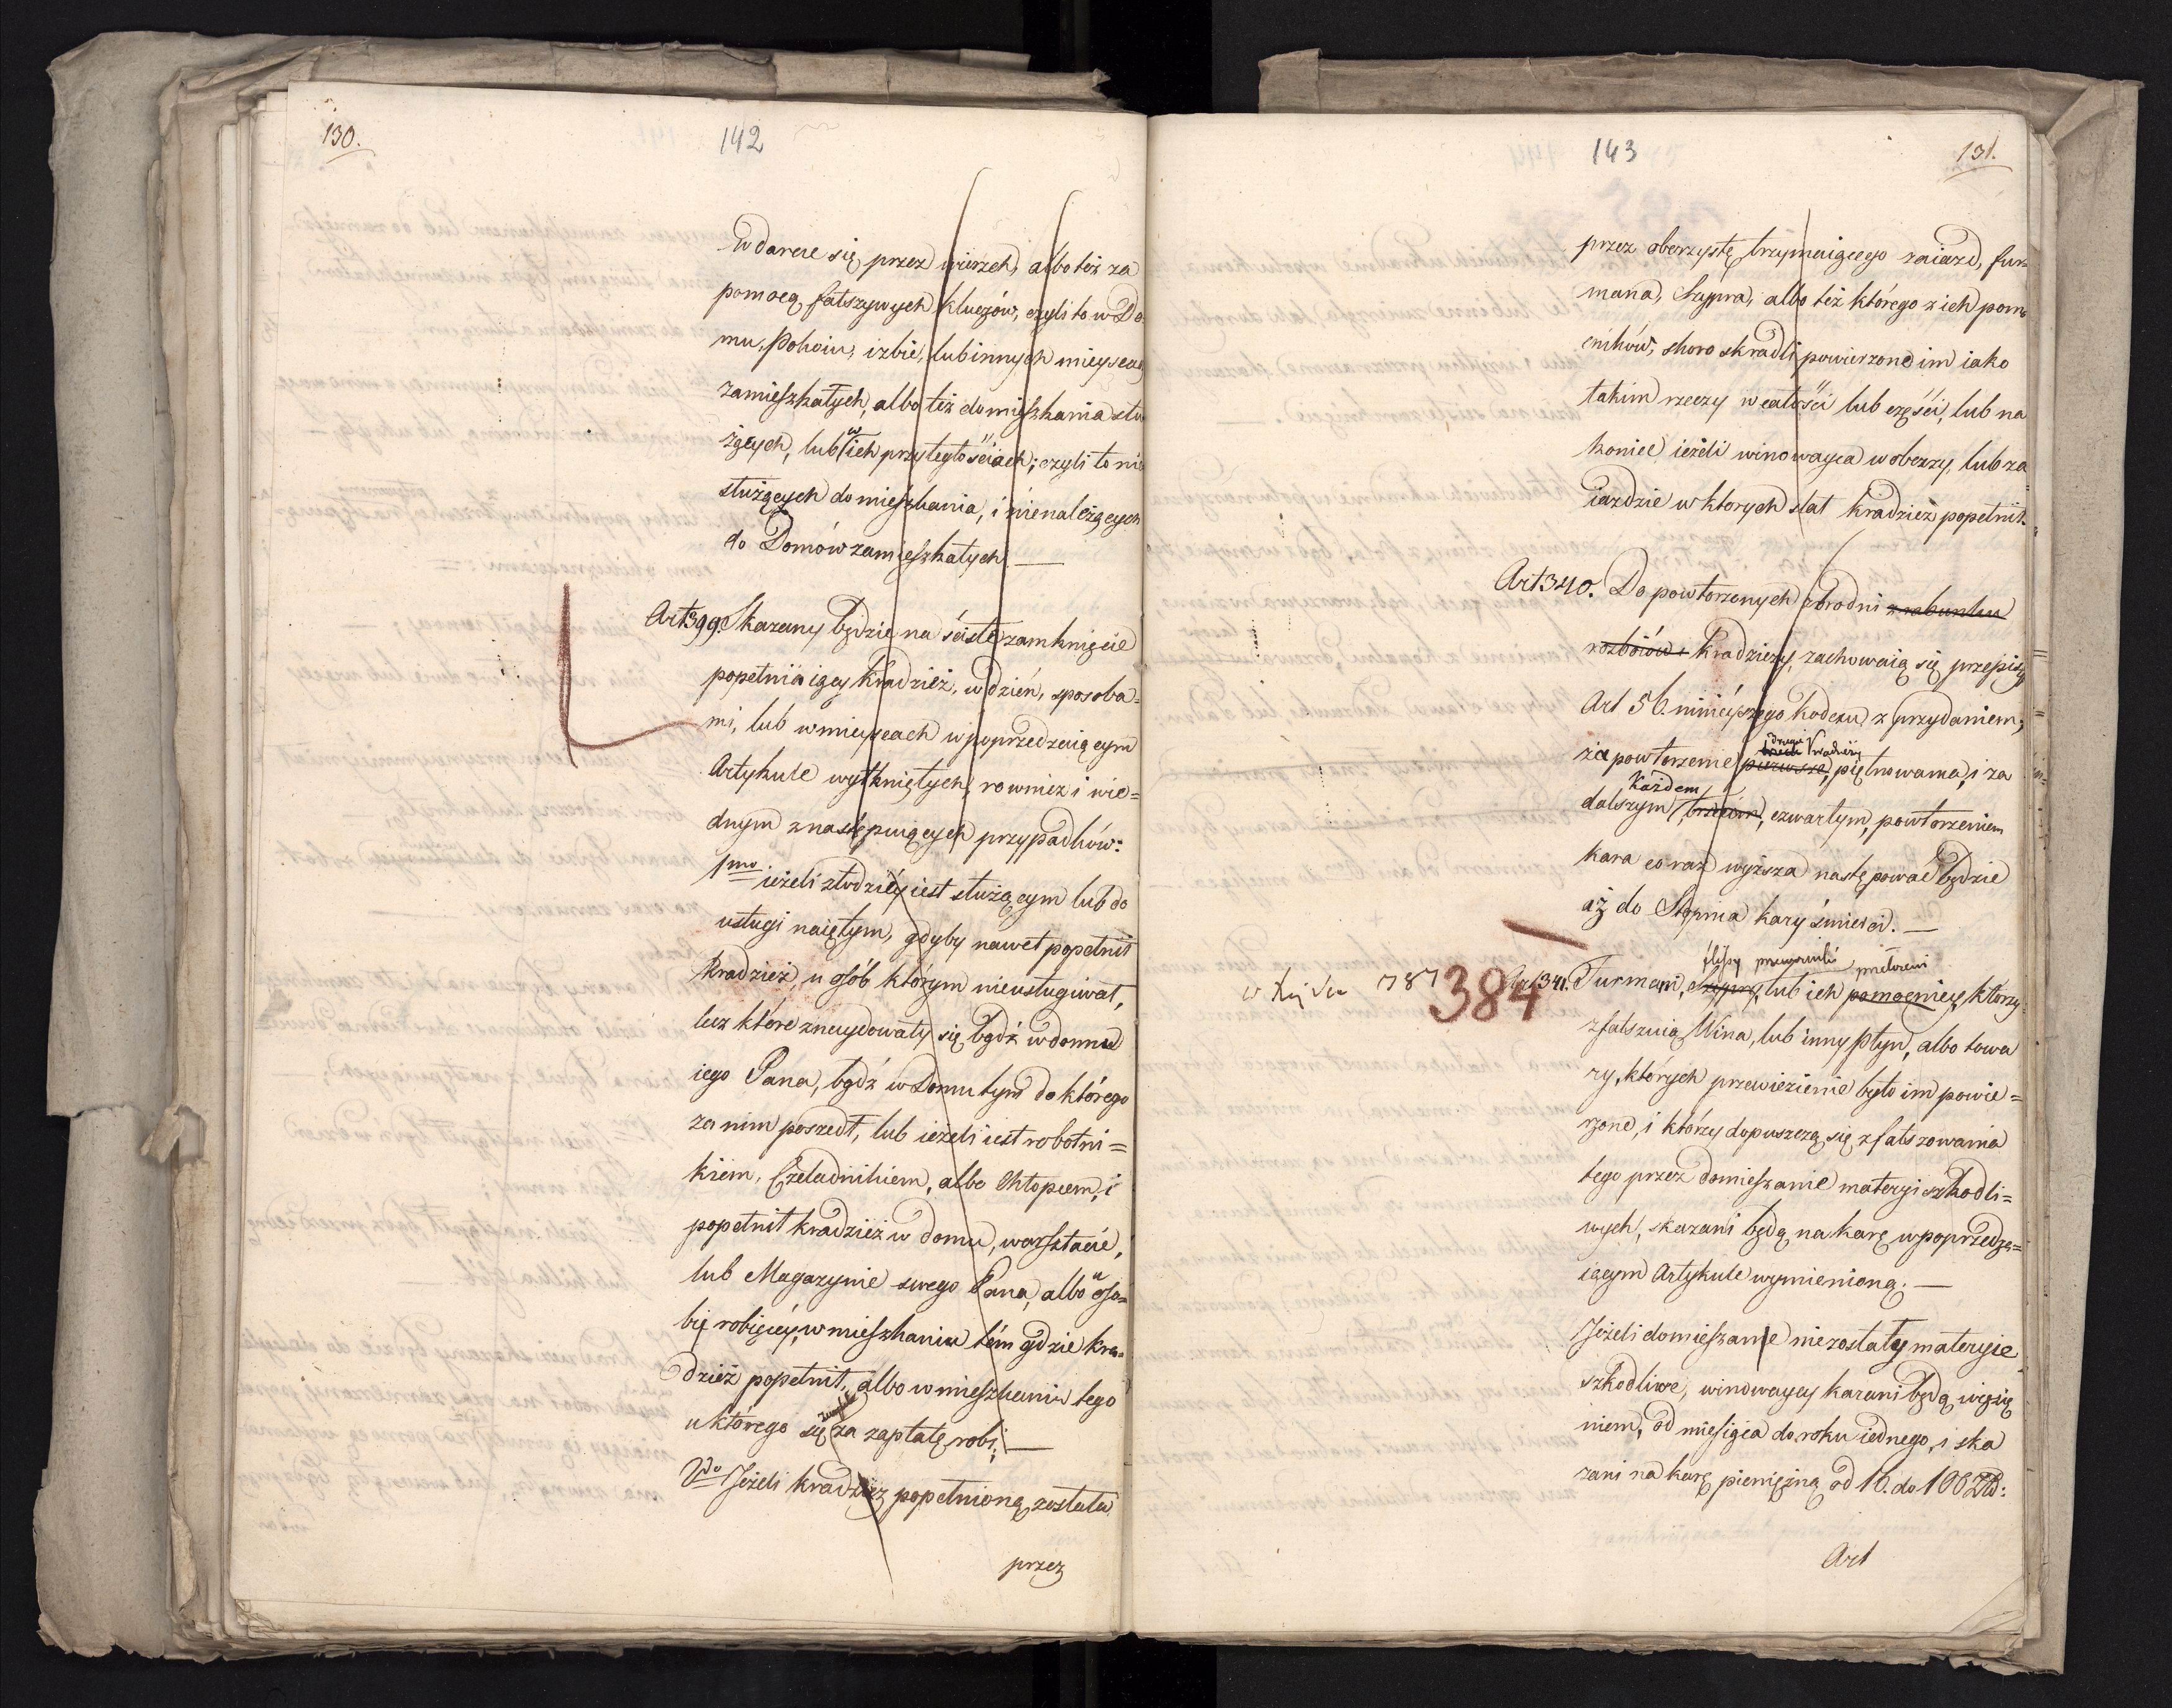 130.
142
Wdarcie się przez wierzch, albo też za
pomocą fałszywych kluczów, czyli to w Do-
mu, Pokoiu, izbie, lub innych mieyscach
zamieszkałych, albo też do mieszkania słu
żących, lub w ich przyległościach; czyli to nie
służących do mieszkania, i nienależących
do Domów zamieszkałych. —
Art 399. Skazany będzie na ściste zamknięcie
popełniaiący Kradzież, w dzień, sposoba=
mi, lub w mieyscach w poprzedzaiącym
Artykule wytkniętych, rownież i w ie=
dnym z następuiących przypadków:
1mo ieżeli złodziéy iest służącym lub do
usługi naiętym, gdyby nawet popełnił
Kradzież, u osób którym nieusługiwał,
lecz które znaydowały się bądź w domu
iego Pana, bądź w Domu tym do którego
za nim poszedł, lub ieżeli iest robotni=
kiem, Czeladnikiem, albo Chłopcem, i
popełnił kradzież w domu, warsztacie,
lub Magazynie swego Pana, albo u oso=
bię robiącey, w mieszkaniu tém gdzie kra=
dzież popełnił, albo w mieszkaniu tego
u którego się za zapłatę robi. —
2do Jeżeli kradzież popełnioną została
przez
143
131.
przez oberzystę trzymaiącego zaiazd, fur=
mana, Szypra, albo też którego z ich pomo
cników, skoro skradli powierzone im iako
takim rzeczy w całości lub części, lub na
koniec ieżeli winowayca w oberzy, lub za=
iazdzie w ktorych stał kradzież popełnił.
Art 340. Do powtorzonych zbrodni z rabunku
rozboiów i Kradzieży, zachowaią się przepisy
Art 56. ninieyszego Kodexu, z przydaniem,
drugie Kradzieży
że powtorzenie pierwsze, piętnowania, i za
Każdem
dalszym, trzecim, czwartym, powtorzeniem
kara coraz wyższa następować będzie
aż do Stopnia kary śmierci. —
384
Art 341. Furmani, szyprzy, lub ich pomocnicy, którzy
zfałszuią Wina, lub inny płyn, albo towa
ry, których przewiezienie było im powie=
rzone, i którzy dopuszczą się zfałszowania
tego przez domieszanie materyi szkodli=
wych, skazani będą na karę w poprzedza=
iącym Artykule wymienioną. —
Jeżeli domieszane niezostały materyie
szkodliwe, winowaycy karani będą więzię
niem, od miesiąca do roku iednego, i ska
zani na karę pieniężną od 16. do 100 Złp:
Art